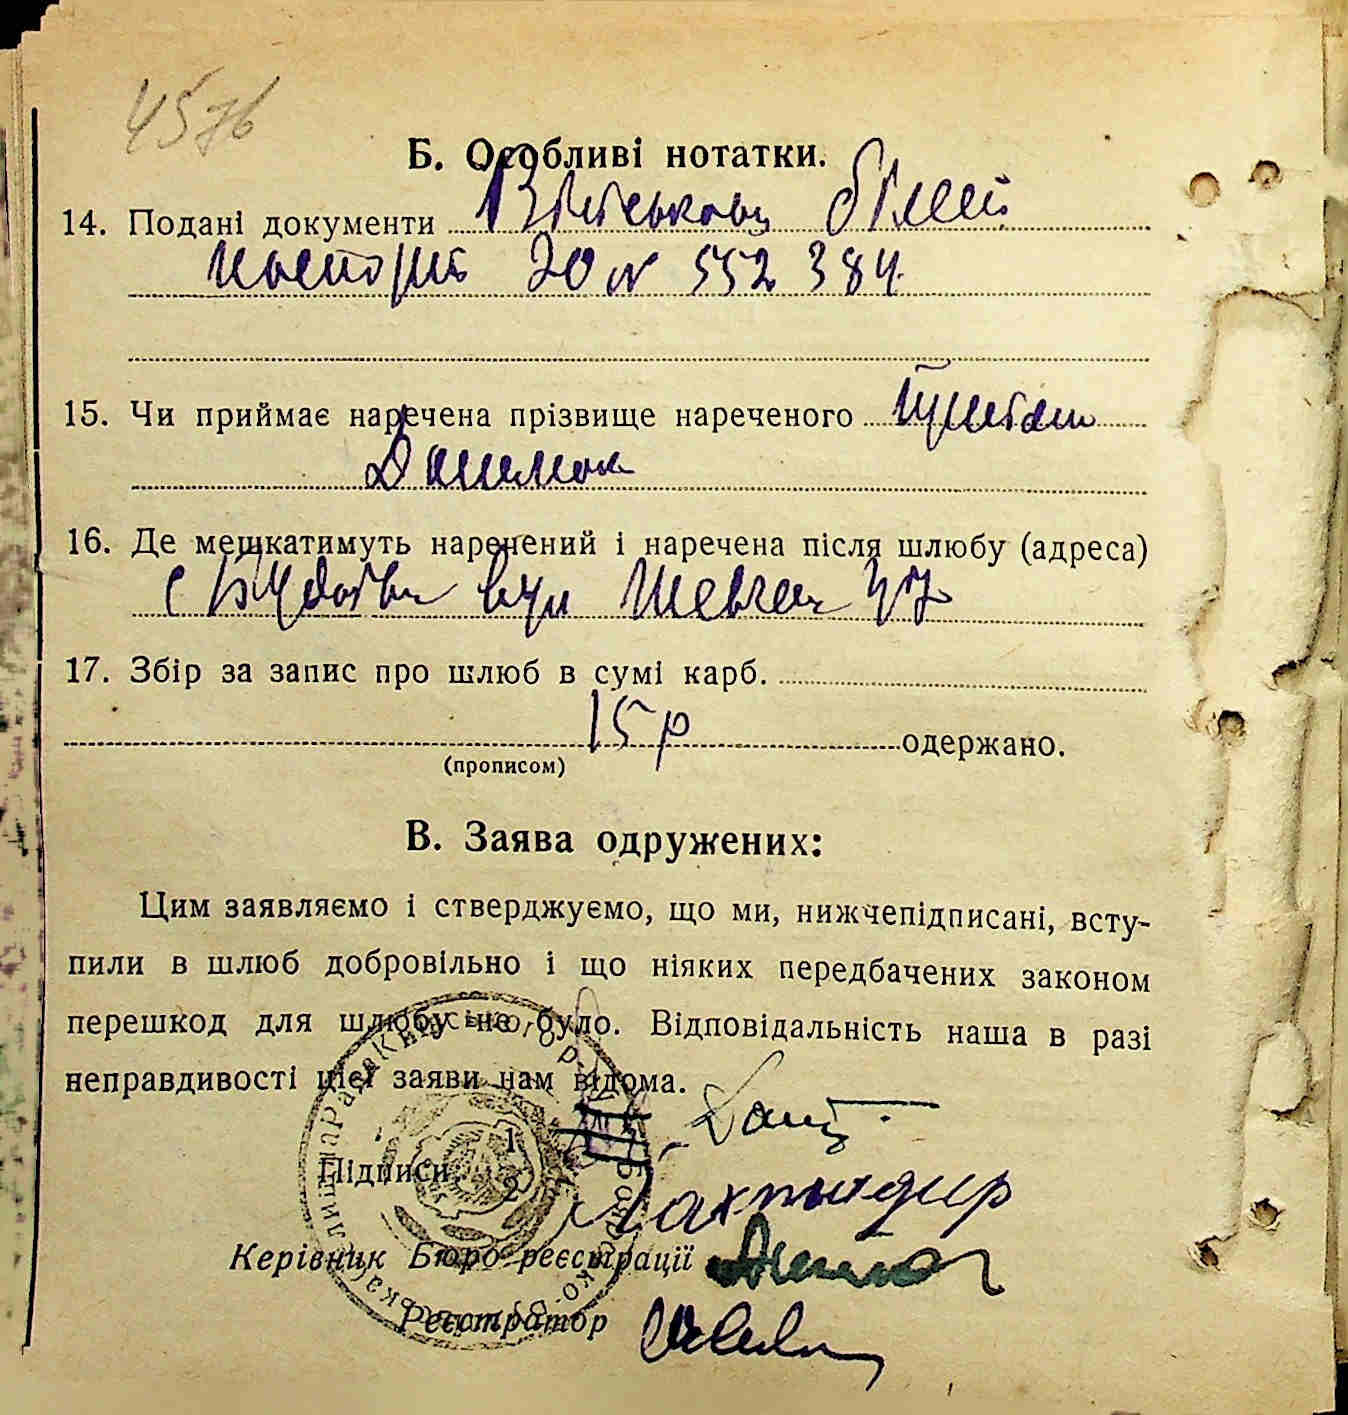 4576
Б. Особливі нотатки.
14. Подані документи Військовий білет
паспорт 20 № 552384
15. Чи приймає наречена прізвище нареченого приймає
16. Де мешкатимуть наречений і наречена після шлюбу (адреса)
с вул Шевчен 47
17. Збір за запис про шлюб в сумі карб.
15 р одержано.
(прописом)
В. Заява одружених:
Цим заявляємо і стверджуємо, що ми, нижчепідписані, всту-
пили в шлюб добровільно і що ніяких передбачених законом
перешкод для шлюбу не було. Відповідальність наша в разі
неправдивості цієї заяви нам відома.
Підписи 1
2
Керівник Бюро реєстрації
Реєстратор